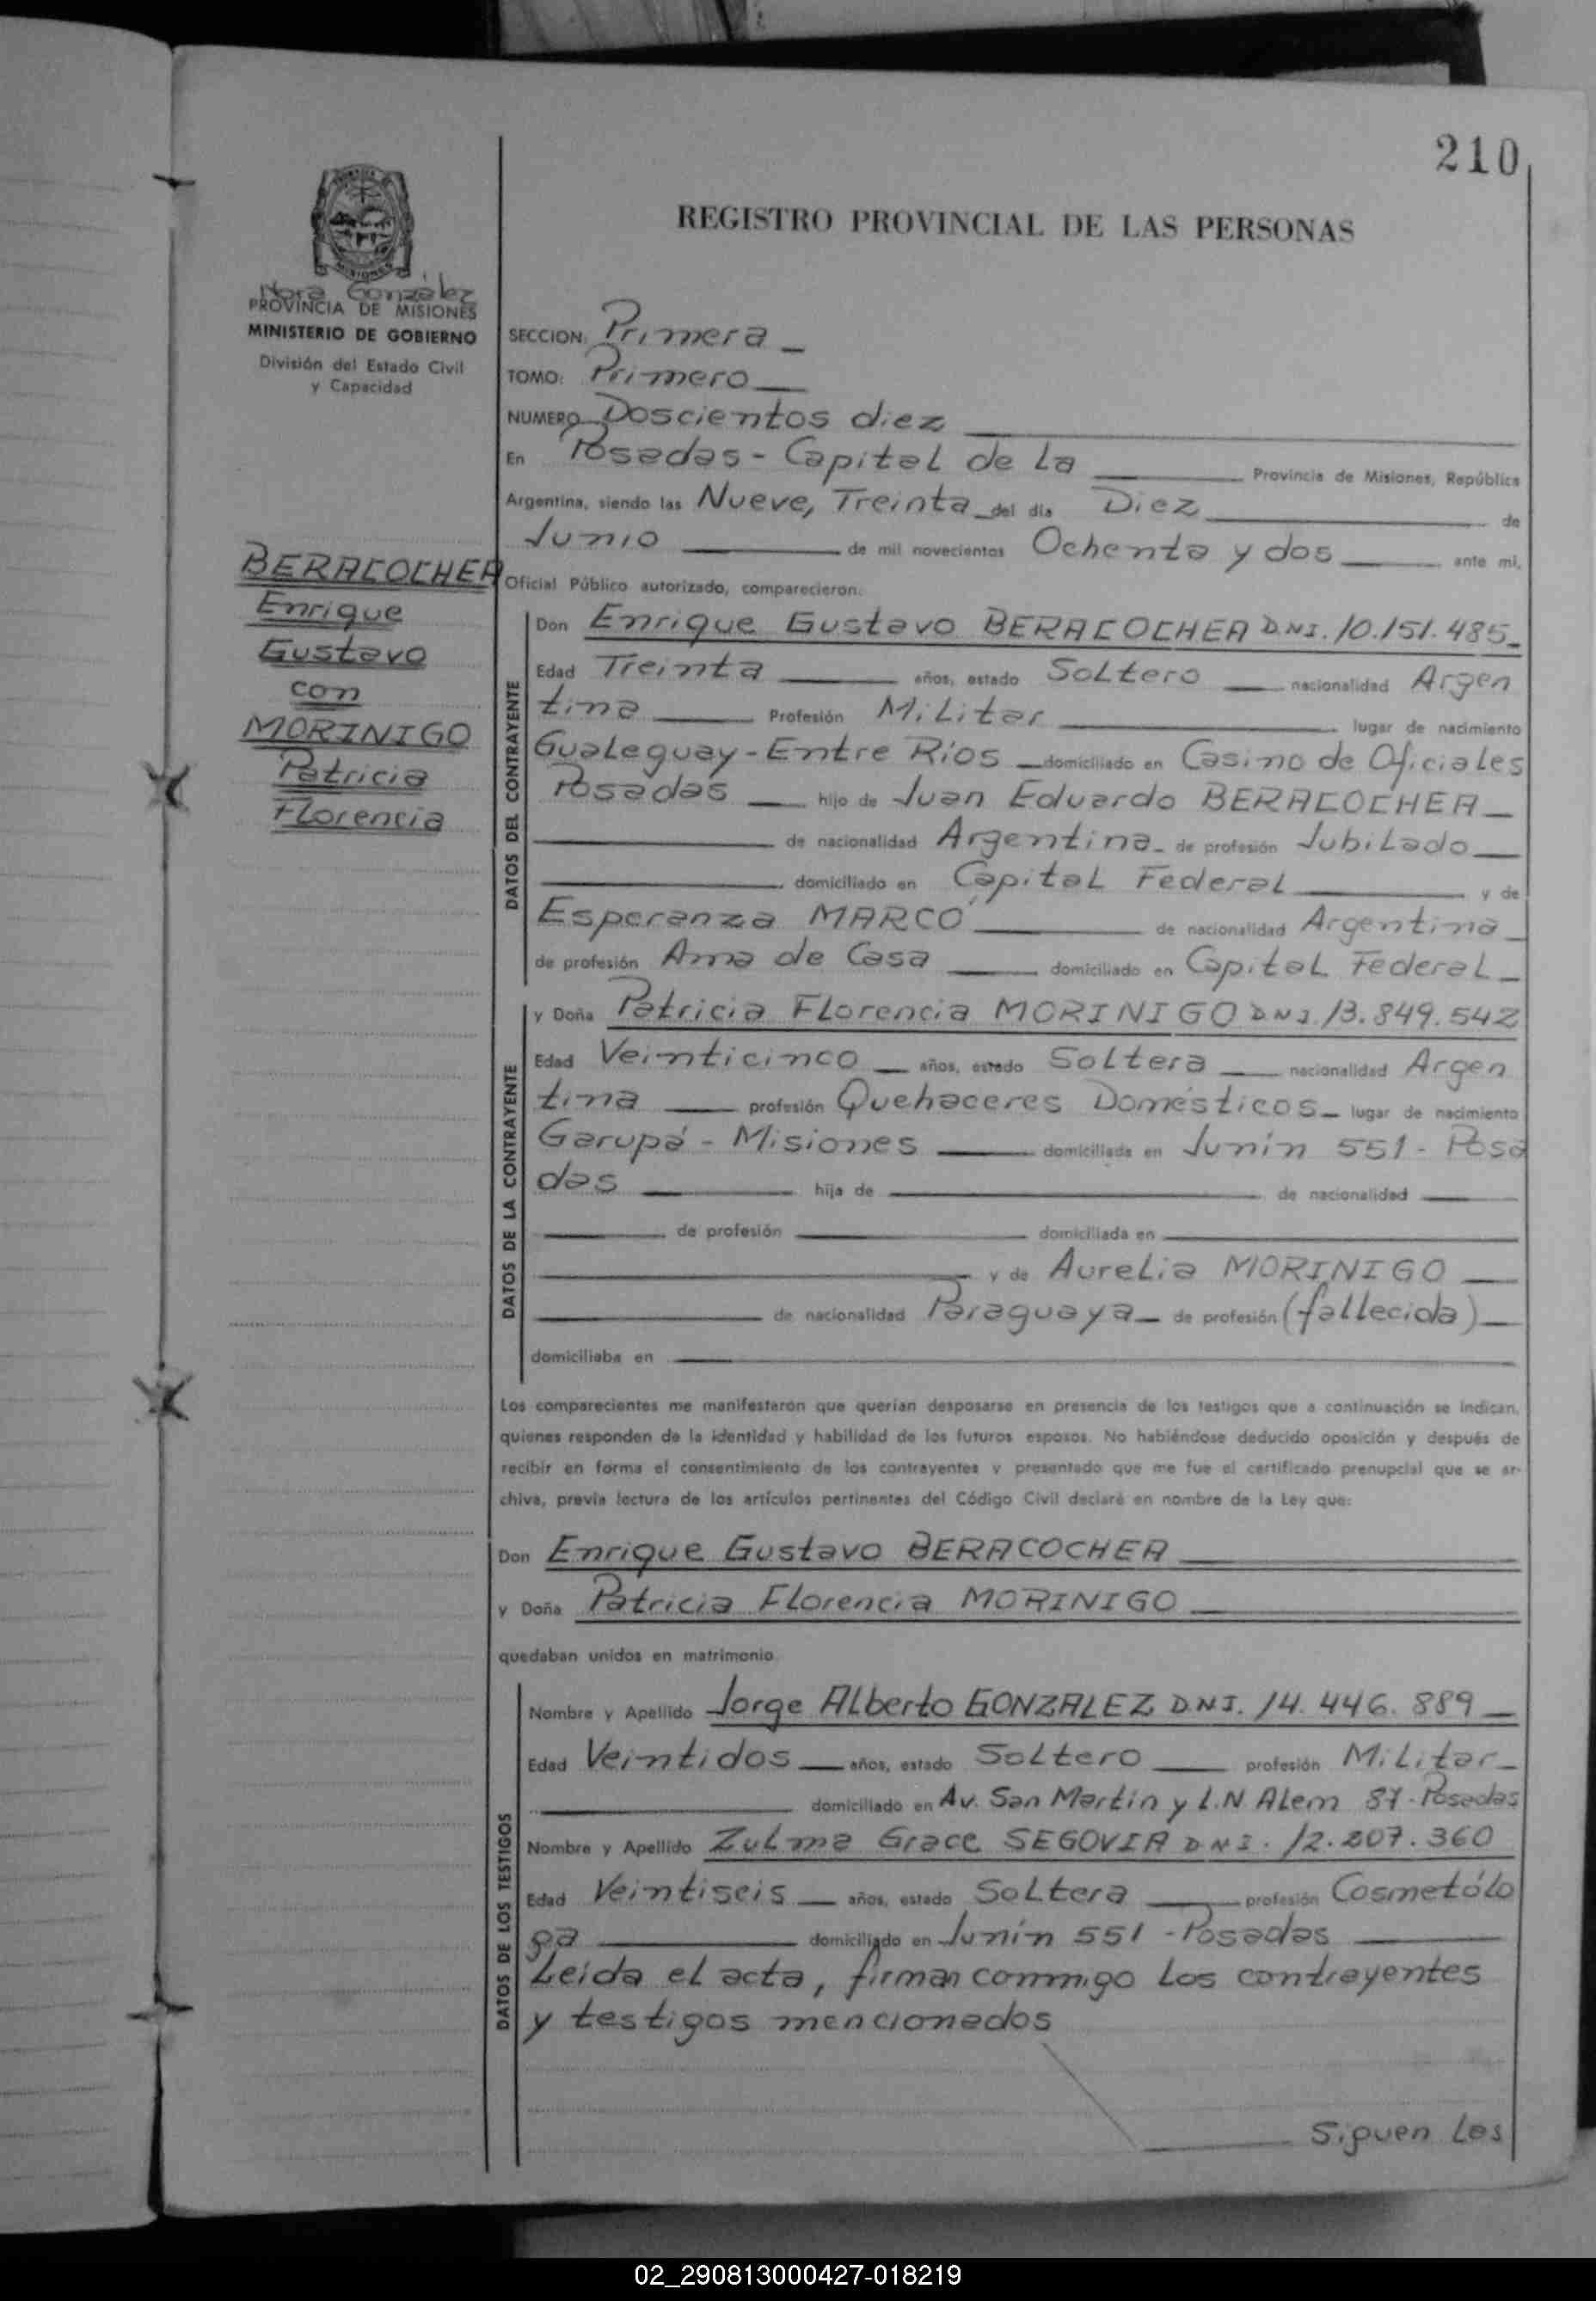 210
REGISTRO PROVINCIAL DE LAS PERSONAS
MISIONES
Nora González
PROVINCIA DE MISIONES
MINISTERIO DE GOBIERNO
División del Estado Civil
y Capacidad
SECCION: Primera
TOMO: Primero
NUMERO Doscientos diez
En Posadas - Capital de La Provincia de Misiones, República
Argentina, siendo las Nueve, Treinta del día Diez de
Junio de mil novecientos Ochenta y dos ante mi,
Oficial Público autorizado, comparecieron:
BERACOCHEA
Enrique
Gustavo
con
MORINIGO
Patricia
Florencia
DATOS DEL CONTRAYENTE
Don Enrique Gustavo BERACOCHEA D.N.I. 10.151.485
Edad Treinta años, estado Soltero nacionalidad Argen
tina Profesión Militar lugar de nacimiento
Gualeguay - Entre Ríos domiciliado en Casino de Oficiales
Posadas hijo de Juan Eduardo BERACOCHEA
de nacionalidad Argentina de profesión Jubilado
domiciliado en Capital Federal y de
Esperanza MARCO de nacionalidad Argentina
de profesión Ama de Casa domiciliado en Capital Federal
DATOS DE LA CONTRAYENTE
y Doña Patricia Florencia MORINIGO D.N.I. 13.849.542
Edad Veinticinco años, estado Soltera nacionalidad Argen
tina profesión Quehaceres Domésticos lugar de nacimiento
Garupá - Misiones domiciliada en Junín 551 - Posa
das hija de de nacionalidad
de profesión domiciliada en
y de Aurelia MORINIGO
de nacionalidad Paraguaya de profesión (fallecida)
domiciliaba en
Los comparecientes me manifestarón que querían desposarse en presencia de los testigos que a continuación se indican,
quienes responden de la identidad y habilidad de los futuros esposos. No habiéndose deducido oposición y después de
recibir en forma el consentimiento de los contrayentes y presentado que me fue el certificado prenupcial que se ar-
chiva, previa lectura de los artículos pertinentes del Código Civil declaré en nombre de la Ley que:
Don Enrique Gustavo BERACOCHEA
y Doña Patricia Florencia MORINIGO
quedaban unidos en matrimonio
DATOS DE LOS TESTIGOS
Nombre y Apellido Jorge Alberto GONZALEZ D.N.I. 14.446.889
Edad Veintidos años, estado Soltero profesión Militar
domiciliado en Av. San Martín y L.N. Alem 87 - Posadas
Nombre y Apellido Zulma Grace SEGOVIA D.N.I. 12.207.360
Edad Veintiseis años, estado Soltera profesión Cosmetólo
ga domiciliado en Junín 551 - Posadas
Leida el acta, firman conmigo Los contrayentes
y testigos mencionados
Siguen Las
02_290813000427-018219